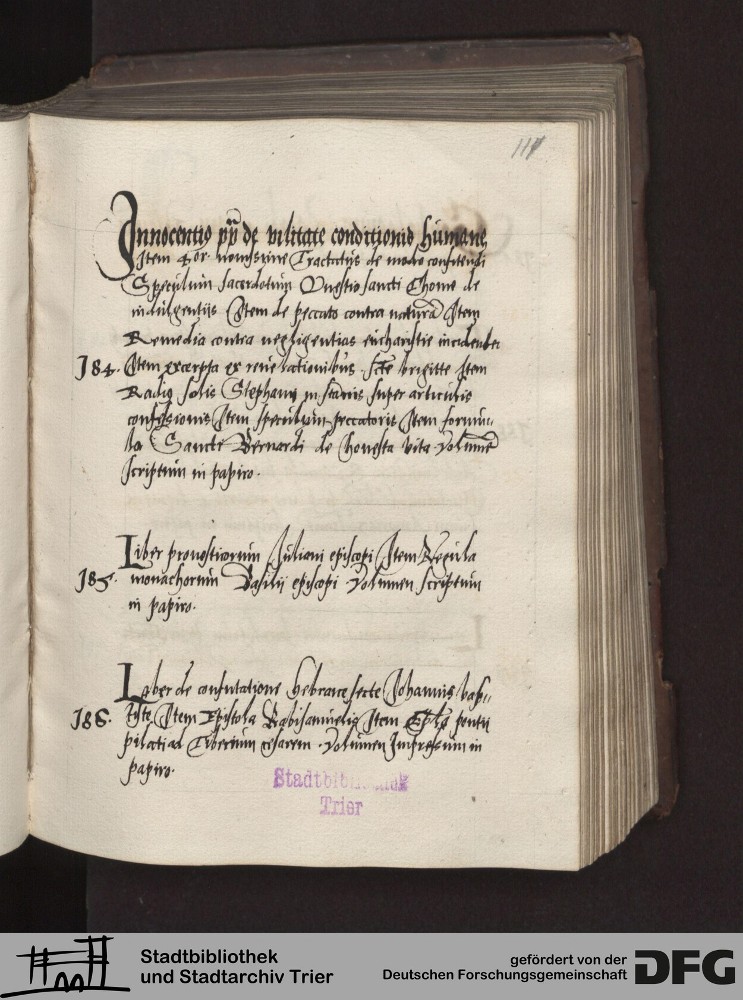 111
Innocentiꝰ pp̃ de vilitate conditionis humane,
Item Tractatus de modo confitendi
Speculum sacerdotum Questio sancti Thome de
indulgentijs Item de peccato contra naturã Item
Remedia contra negligentias eucharistie incidentes
184. Item excerpta ex reuelationibus scte brigitte Item
Radiꝰ solis Stephani super articulis
confessionis Item speculum peccatoris Item formu-
la Sancti Bernardi de honesta vita volumẽ
scriptum in papiro.
Liber pronosticorum Iuliani episcopi Item Regula
185. monachorum Basilij episcopi Volumen scriptum
in papiro.
Liber de confutatione hebraice secte Iohannis bap-
186. tiste Item Epistola Rabi samuelis Item Ep̃la pontij
pilati ad Tiberium cesarem. Volumen Impressum in
papiro.
Stadtbibliothek
Trier
Stadtbibliothek
und Stadtarchiv Trier
gefördert von der
Deutschen Forschungsgemeinschaft
DFG